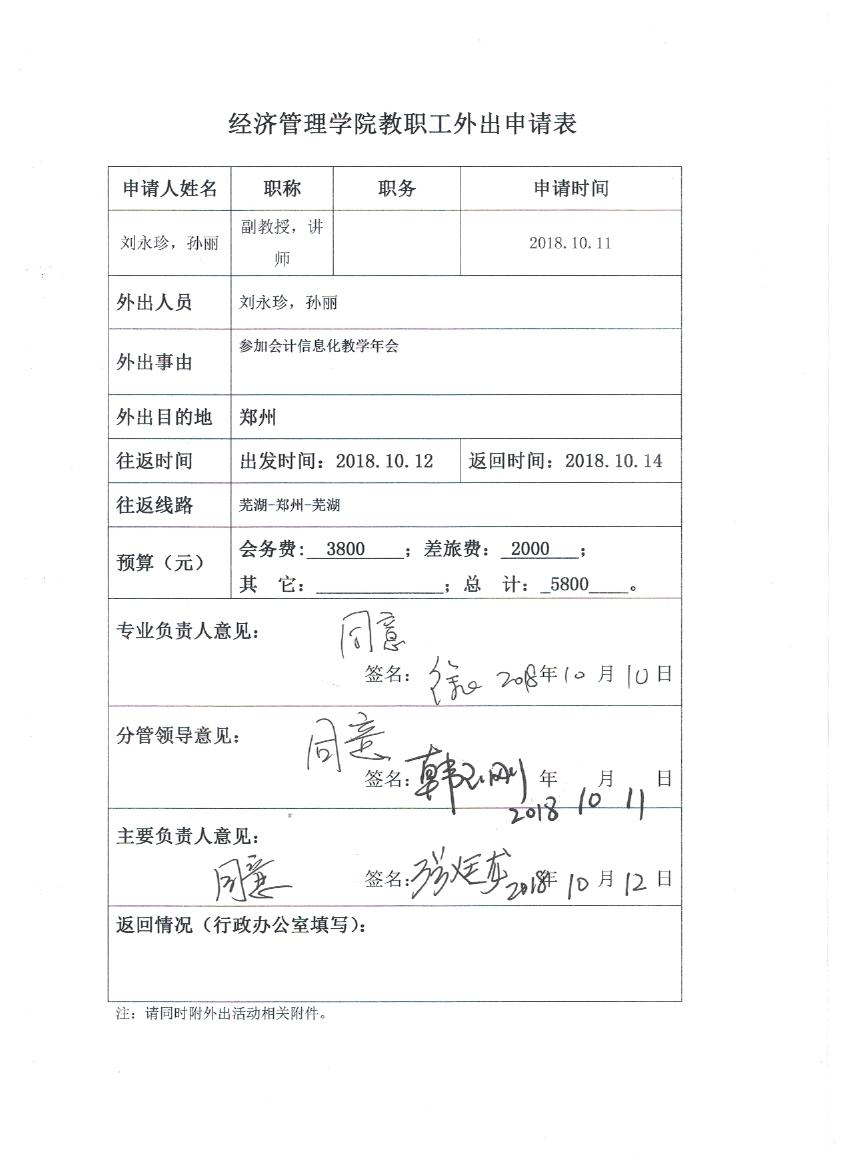 经济管理学院教职工外出申请表
申请人姓名 职称 职务 申请时间
刘永珍，孙丽 副教授，讲师 2018.10.11
外出人员 刘永珍，孙丽
外出事由 参加会计信息化教学年会
外出目的地 郑州
往返时间 出发时间：2018.10.12 返回时间：2018.10.14
往返线路 芜湖-郑州-芜湖
预算（元） 会务费：3800；差旅费：2000；
其 它：；总 计：5800。
专业负责人意见：
同意
签名： 2018年10月10日
分管领导意见：
同意
签名： 年 月 日
2018 10 11
主要负责人意见：
同意 签名： 2018年10月12日
返回情况（行政办公室填写）：
注：请同时附外出活动相关附件。